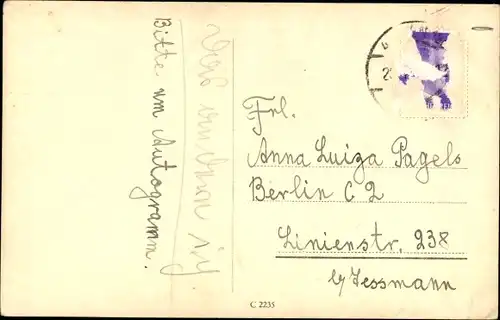 Bitte um Autogramm.
Frl.
Anna Luiza Pagels
Berlin C 2
Linienstr. 238
b/ Jessmann
C 2235